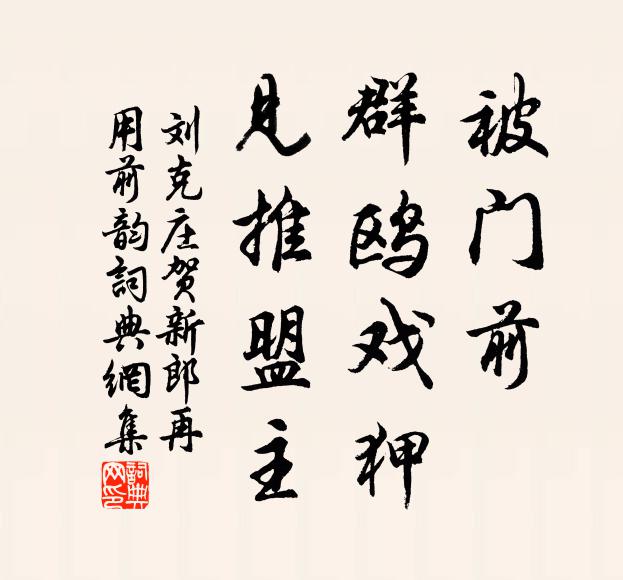 被门前
群鸥戏狎
见推盟主
刘克庄贺新郎再
用前韵詞典網集
詞典网印